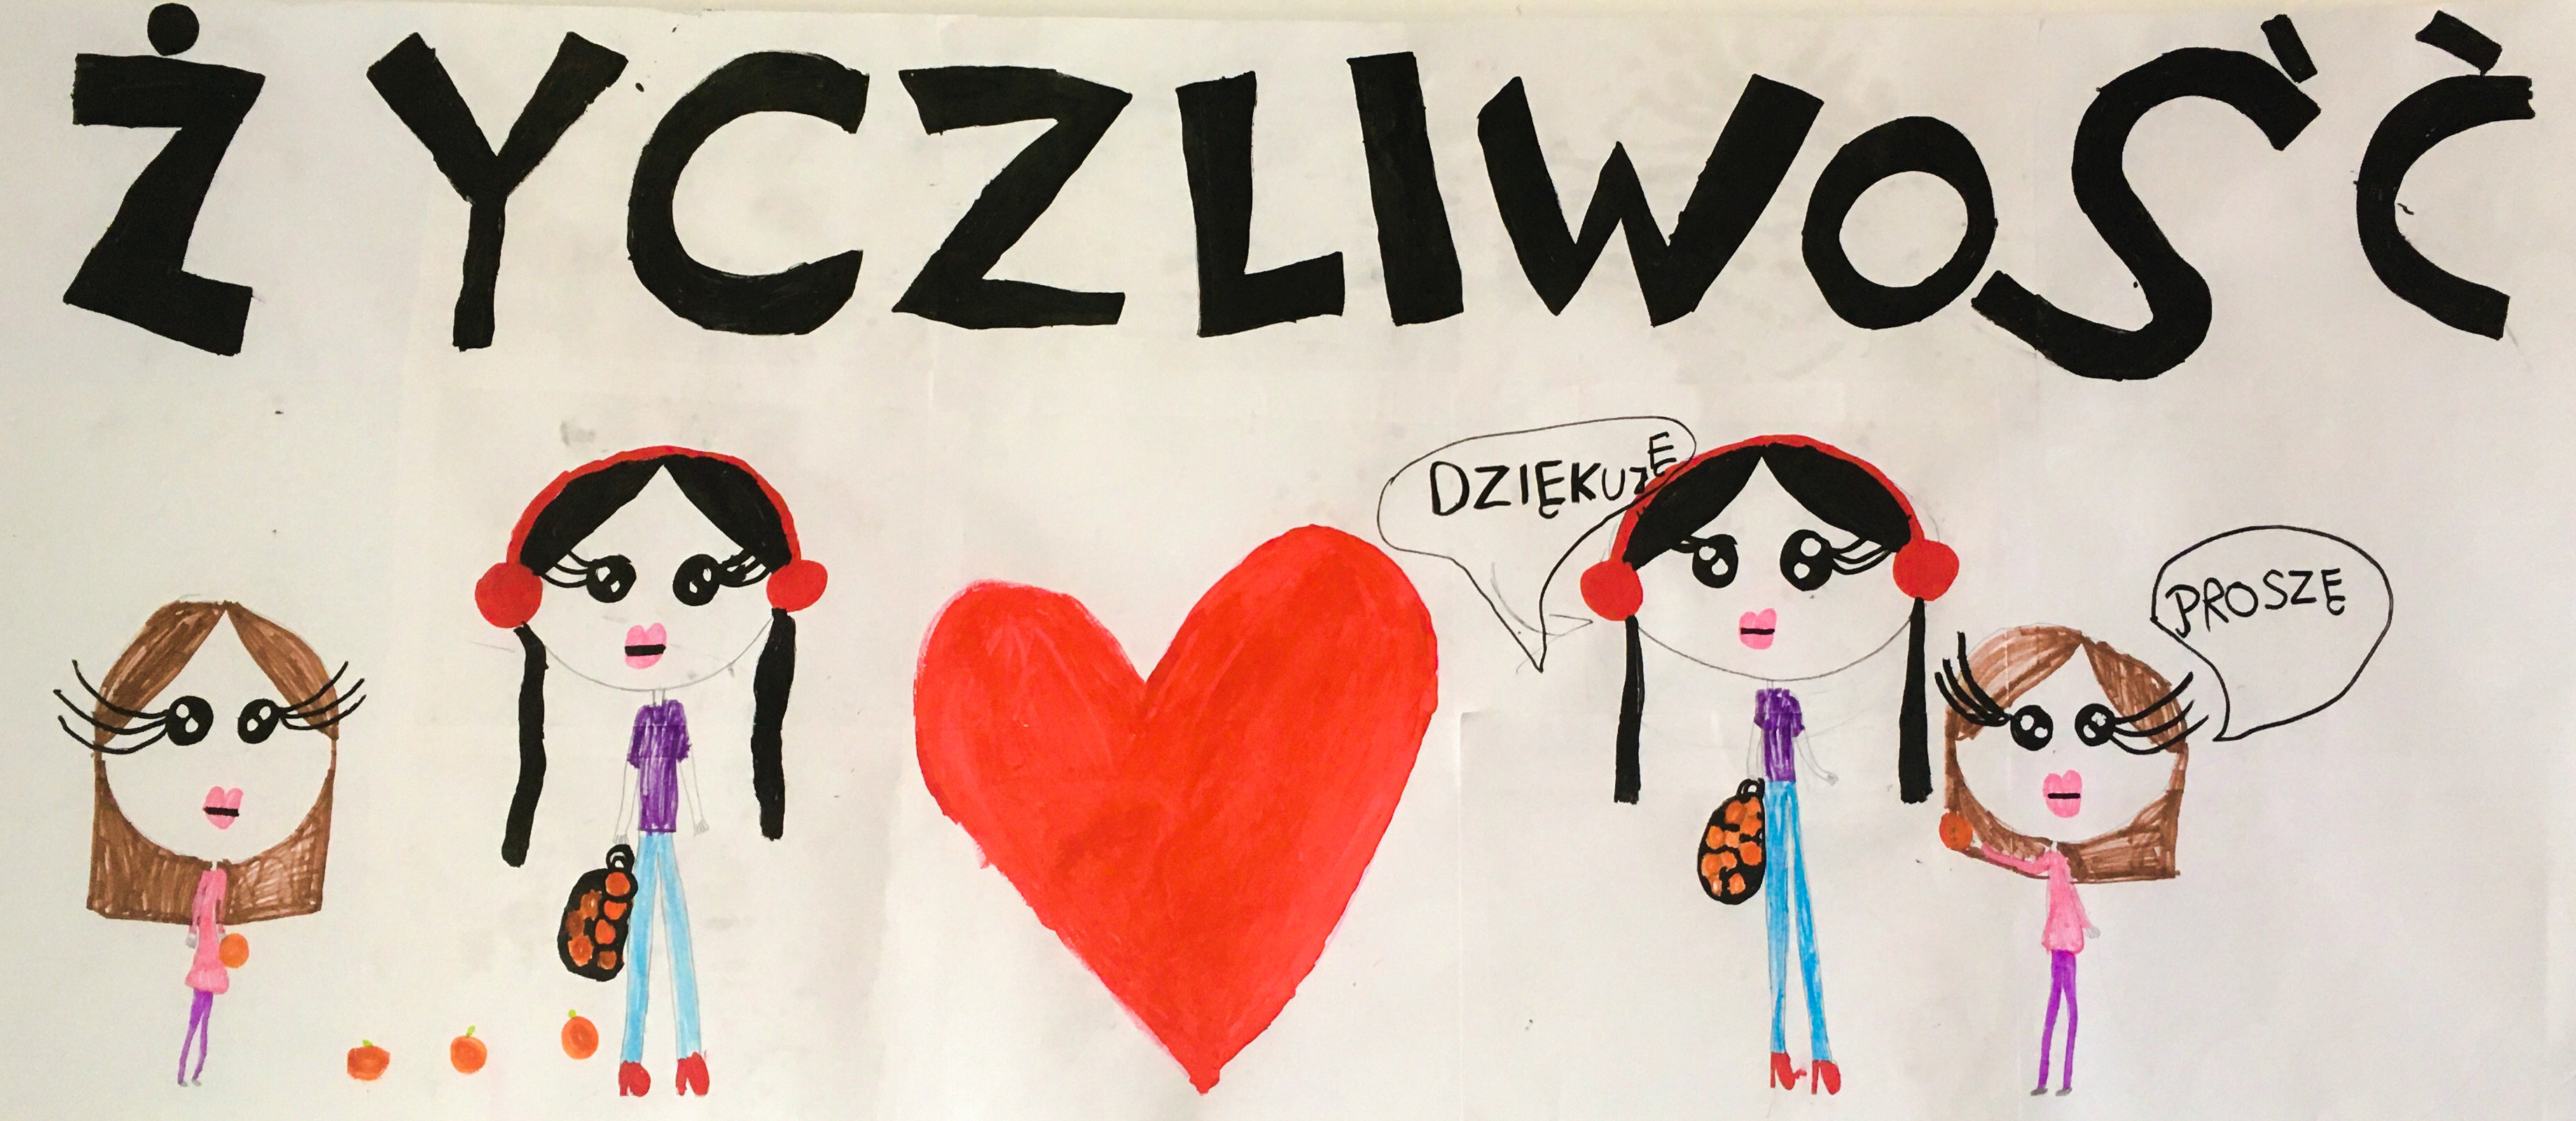 ŻYCZLIWOŚĆ
DZIĘKUJĘ
PROSZĘ